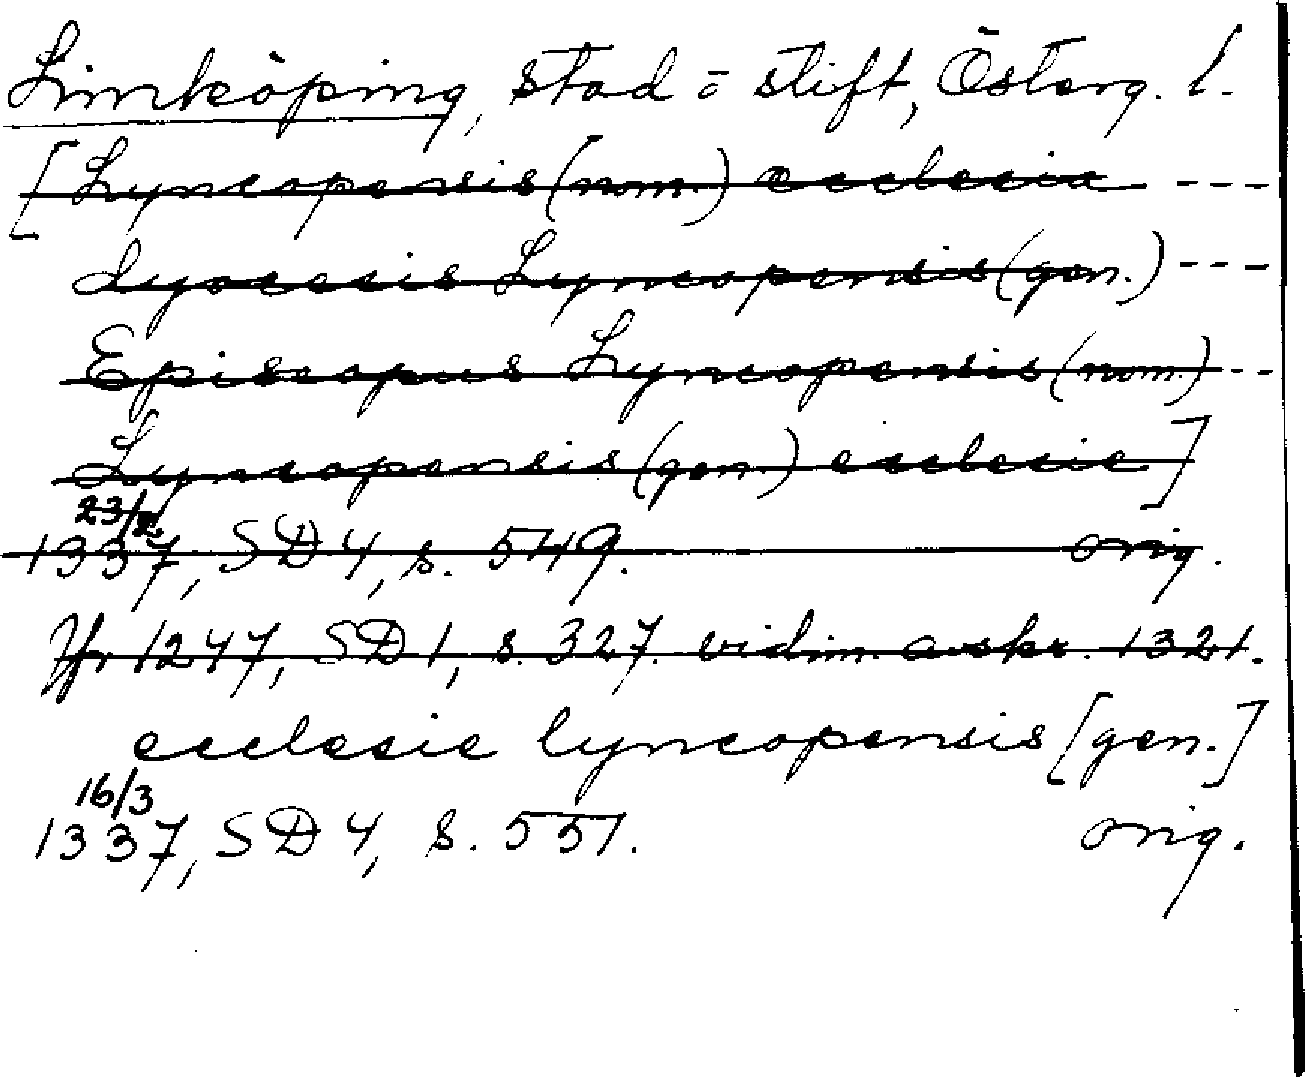 Linköping, stad o stift, Österg. l.
[Lyncopensis (nom.) ecclesia ---
dyocesis Lyncopensis (gen.) ---
Episcopus Lyncopensis (nom.) --
Lyncopensis (gen.) ecclesie]
23/2
1337, SD 4, s. 549. orig.
Jfr 1247, SD 1, s. 327. vidim. avskr. 1321.
ecclesie lyncopensis [gen.]
16/3
1337, SD 4, s. 551. orig.